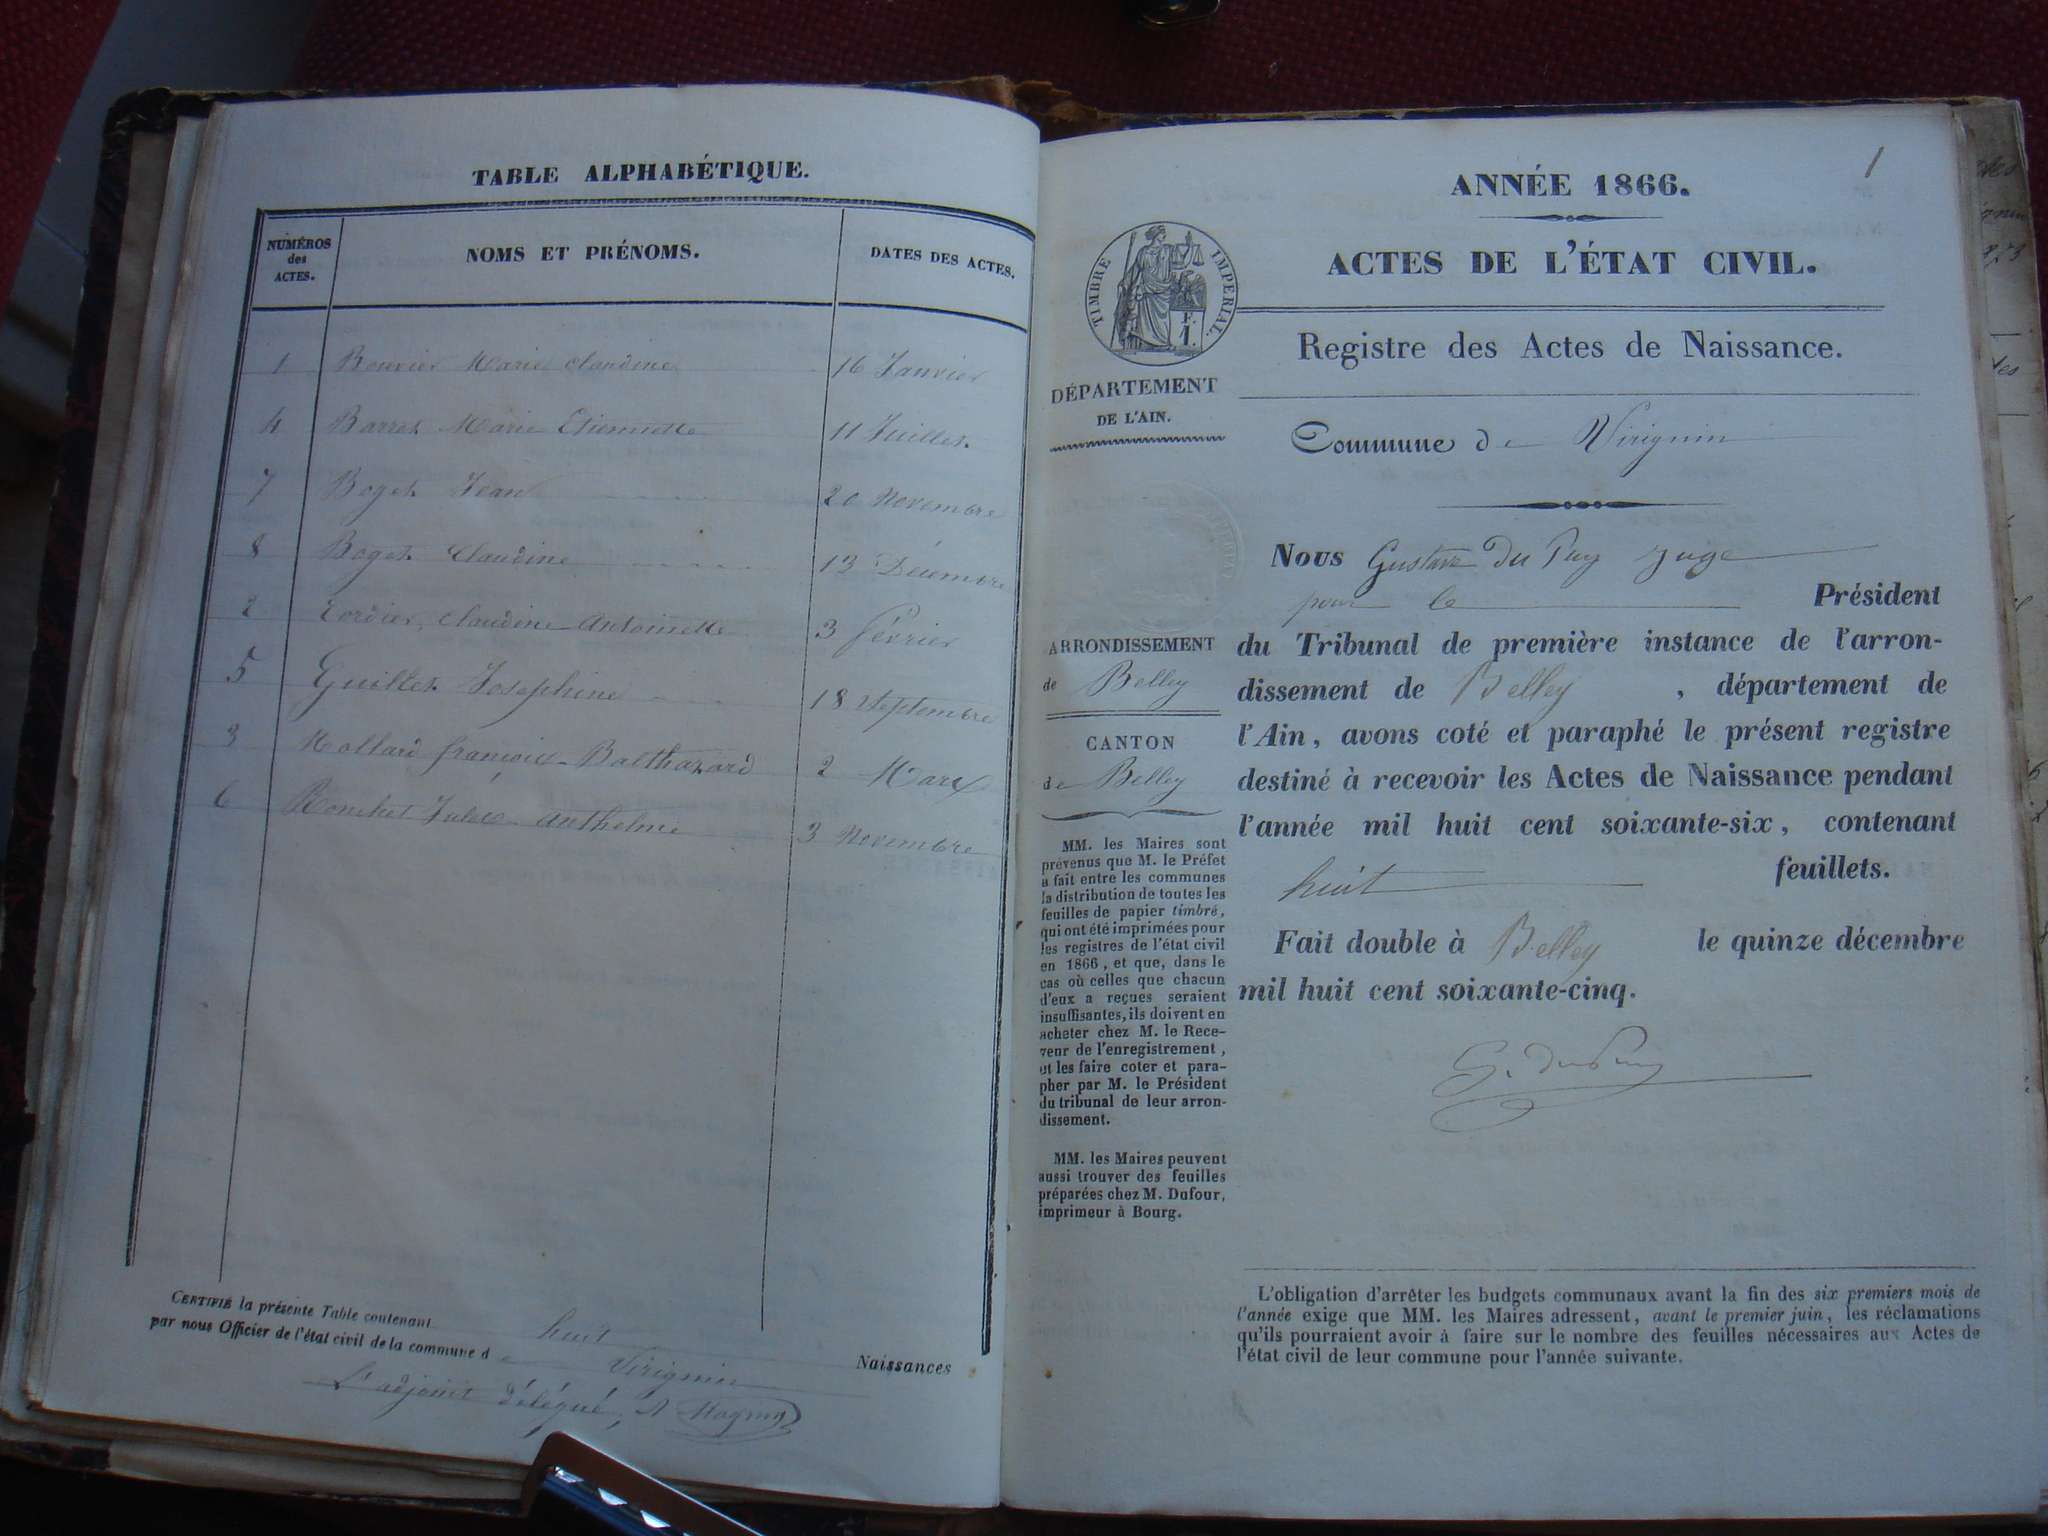 TABLE ALPHABÉTIQUE.
NUMÉROS des ACTES. NOMS ET PRÉNOMS. DATES DES ACTES.
1 Bouvier Marie Claudine 16 Janvier
4 Barret Marie Etiennette 11 Juillet
7 Boget Jean 20 Novembre
8 Boget Claudine 13 Décembre
2 Cordier, Claudine Antoinette 3 février
5 Guillet Joséphine 18 Septembre
3 Mollard françois Balthazard 2 Mars
6 Ronchet Jules Anthelme 3 Novembre
CERTIFIÉ la présente Table contenant huit Naissances
par nous Officier de l'état civil de la commune de Virignin
L'adjoint délégué,
1
ANNÉE 1866.
ACTES DE L'ÉTAT CIVIL.
TIMBRE IMPÉRIAL.
F.
1.
Registre des Actes de Naissance.
DÉPARTEMENT
DE L'AIN.
Commune de Virignin
ARRONDISSEMENT
de Belley
CANTON
de Belley
MM. les Maires sont
prévenus que M. le Préfet
a fait entre les communes
la distribution de toutes les
feuilles de papier timbré,
qui ont été imprimées pour
les registres de l'état civil
en 1866, et que, dans le
cas où celles que chacun
d'eux a reçues seraient
insuffisantes, ils doivent en
acheter chez M. le Rece-
veur de l'enregistrement,
et les faire coter et para-
pher par M. le Président
du tribunal de leur arron-
dissement.
MM. les Maires peuvent
aussi trouver des feuilles
préparées chez M. Dufour,
imprimeur à Bourg.
Nous Gustave Du Puy juge
pour le Président
du Tribunal de première instance de l'arron-
dissement de Belley, département de
l'Ain, avons coté et paraphé le présent registre
destiné à recevoir les Actes de Naissance pendant
l'année mil huit cent soixante-six, contenant
huit feuillets.
Fait double à Belley le quinze décembre
mil huit cent soixante-cinq.
G. DuPuy
L'obligation d'arrêter les budgets communaux avant la fin des six premiers mois de
l'année exige que MM. les Maires adressent, avant le premier juin, les réclamations
qu'ils pourraient avoir à faire sur le nombre des feuilles nécessaires aux Actes de
l'état civil de leur commune pour l'année suivante.